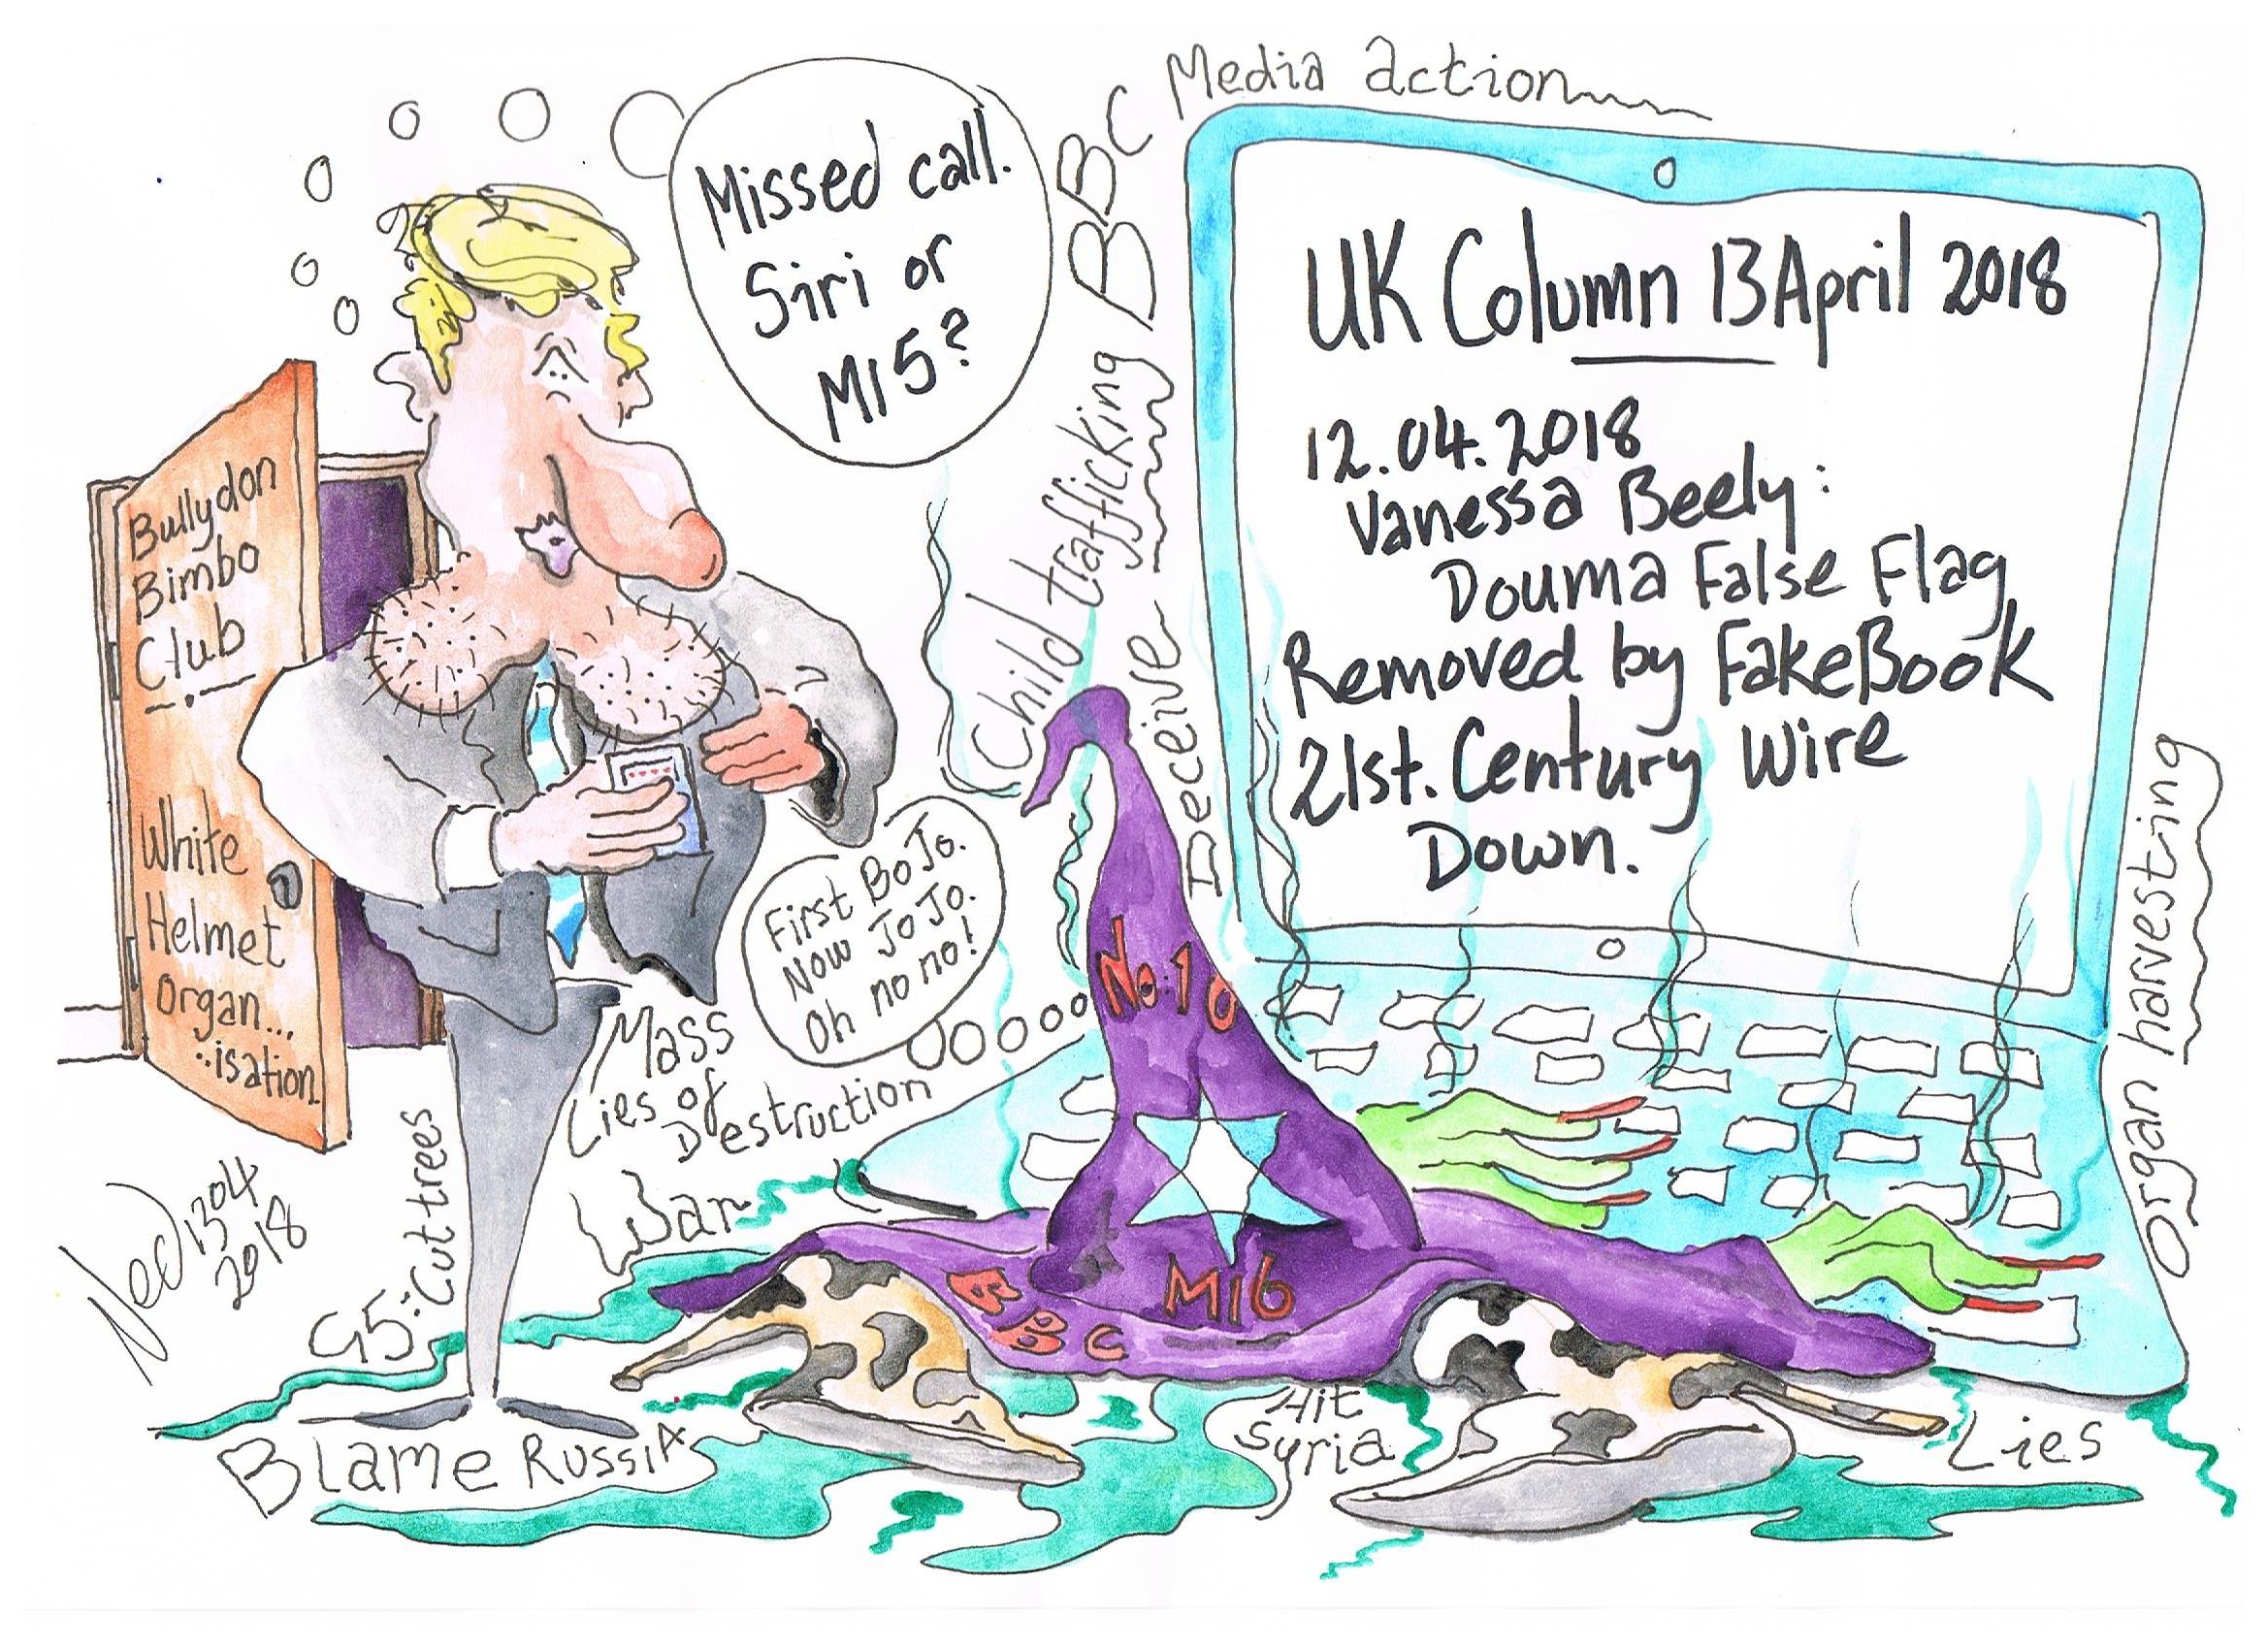 BBC Media action
Missed call.
Siri or
MI5?
UK Column 13 April 2018
12.04.2018
Vanessa Beely:
Douma False Flag
Removed by FakeBook
21st. Century Wire
Down.
Child trafficking
Deceive
organ harvesting
Bullydon
Bimbo
Club
White
Helmet
organ...
..isation
First BoJo.
Now JoJo.
Oh no no!
No.10
BBC
MI6
Mass
Lies of
Destruction
War
G5: Cut trees
Ned 1304
2018
Blame Russia
Hit
Syria
Lies